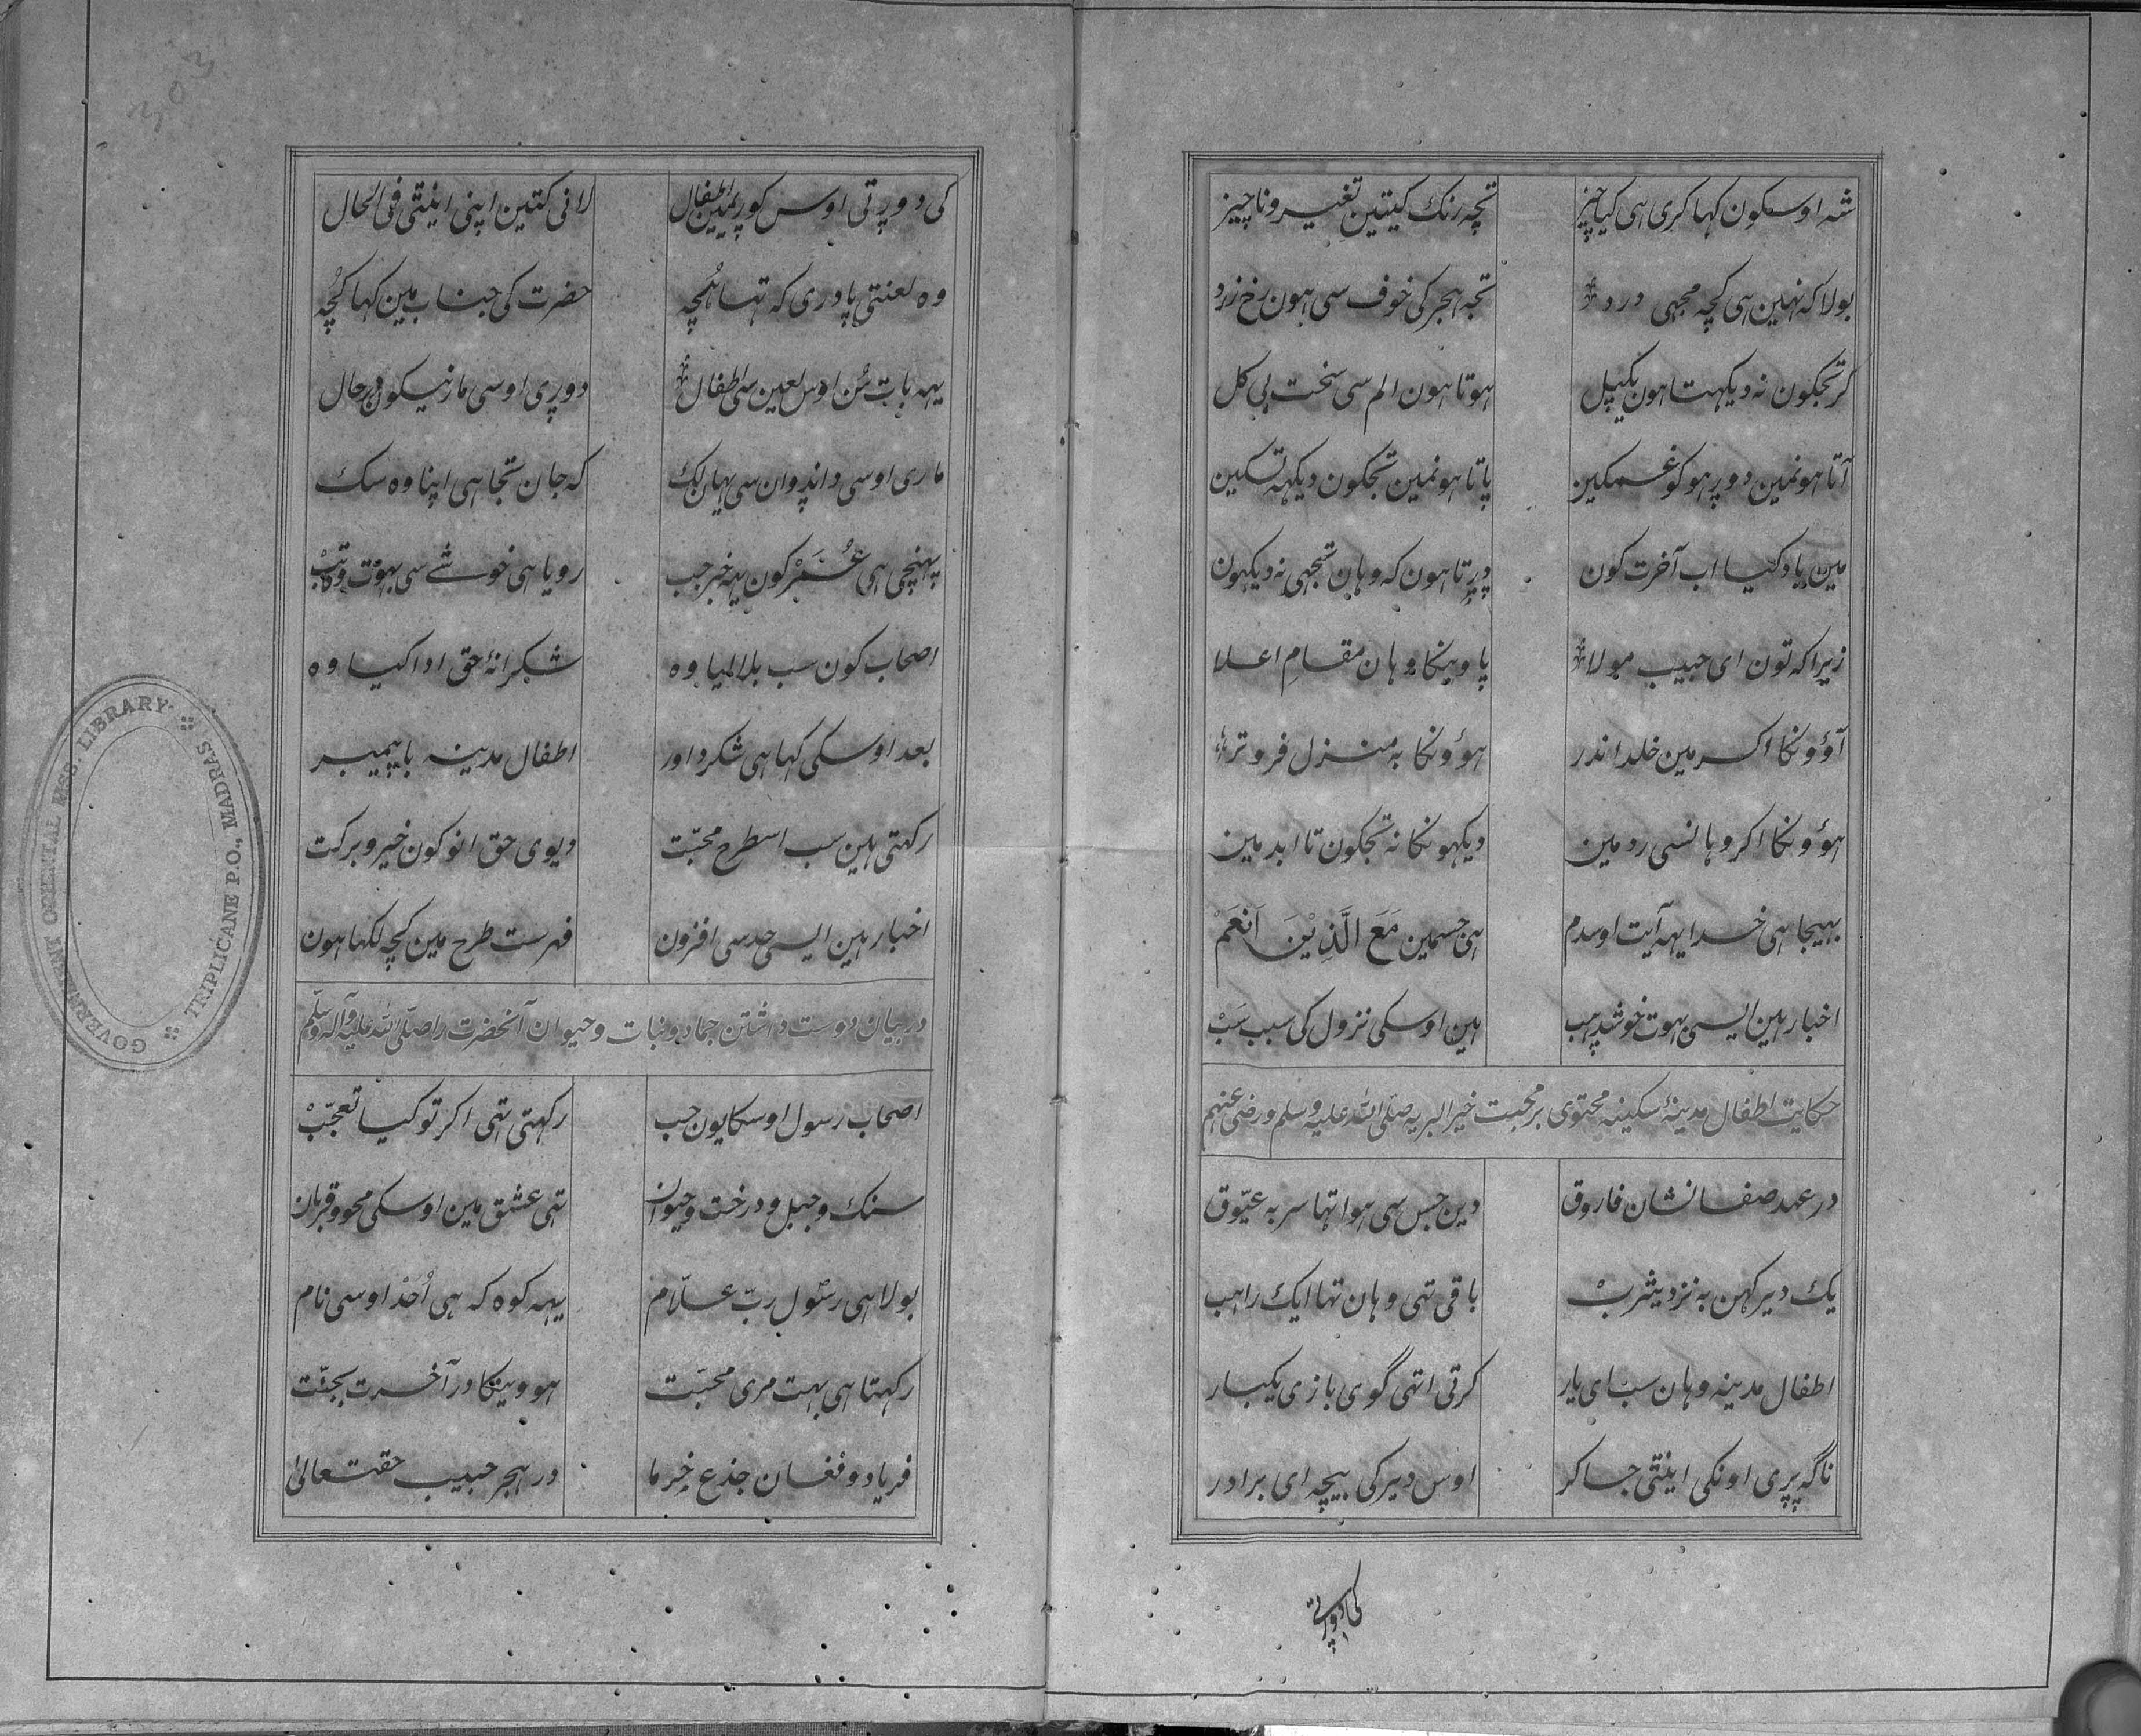 شه اوسکون کہا کری ہی کیا چیز تجہ رنک کیتین تغیر و ناچیز
بولا کہ نہین ہی کچہ مجہی درد تجہ ہجر کی خوف سی ہون رخ زرد
کر تجکون نہ دیکہتا ہون یکپل ہوتا ہون الم سی سخت بی کل
آتا ہونمین دور ہو کو غمکین پاتا ہونمین تجکون دیکہہ تسکین
مین یاد کیا اب آخرت کون ڈرتا ہون کہ وہان تجہی نہ دیکہون
زیرا کہ تون ای حبیب مولا پاوینکا وہان مقامِ اعلا
آؤونکا اکر مین خلد اندر ہوؤنکا بہ منزل فروتر
ہوؤونکا اکر وہانسی رد مین دیکہونکا نہ تجکون تا ابد مین
بہیجا ہی خدا یہہ آیت اوسدم ہی جسمین مَعَ الَّذِیْنَ اَنْعَمْ
اخبار ہین ایسی بہوت خوشدہب ہین اوسکی نزول کی سبب سَبْ
حکایت اطفال مدینۂ سکینہ محتوی بر محبت خیر البریہ صلّی اللہ علیہ وسلم و رضی عنہم
در عہد صفا نشان فاروق دین جس سی ہوا تہا سر بہ عیّوق
یك دیر کہن بہ نزد یثربْ باقی تہی وہان تہا ایک راہب
اطفال مدینہ وہان سب ای یار کرتی اتہی گوی بازی یکبار
ناگہ پڑی اونکی اینٹی جا کر اوس دیر کی بیچہ ای برادر
کی دورتی
کی دورتی اوس کور پمین اطفال لانی کتین اپنی اینٹی فی الحال
وہ لعنتی پادری کہ تہا ہُچہ حضرت کی جناب مین کہا کُچہ
یہہ بات سُن اوس لعین سی اطفال دوڑی اوسی مارنیکون درحال
ماری اوسی دانڈوان سی یہان لک کہ جان تجا ہی اپنا وہ سک
پہنچی ہی عُمَرْ کون یہہ خبر جب رویا ہی خوشے سی بہوت وتبْ
اصحاب کون سب بلا لیا وہ شکرانۂ حق ادا کیا وہ
بعد اوسکی کہا ہی شکر داور اطفال مدینہ با پیمبر
رکہتی ہین سب اسطرح محبّت دیوی حق انوکون خیر و برکت
اخبار ہین ایسی حد سی افزون فہرست طرح مین کچہ لکہا ہون
در بیان دوست داشتن جماد و نبات و حیوان آنحضرت را صلّی اللہ علیہ وآلہ وسلّم
اصحاب رسول اوسکا یون حب رکہتی تہی اکر تو کیا تعجّبْ
سنك و جبل و درخت و حیوان تہی عشق مین اوسکی محو و قربان
بولا ہی رسُول ربّ علّام یہہ کوہ کہ ہی اُحُدْ اوسی نام
رکہتا ہی بہت مری محبّت ہووینکا در آخرت بجنّت
فریاد و فغان جذع خرما در ہجر حبیب حقتعالیٰ
GOVERNMENT ORIENTAL MSS. LIBRARY
TRIPLICANE P.O., MADRAS